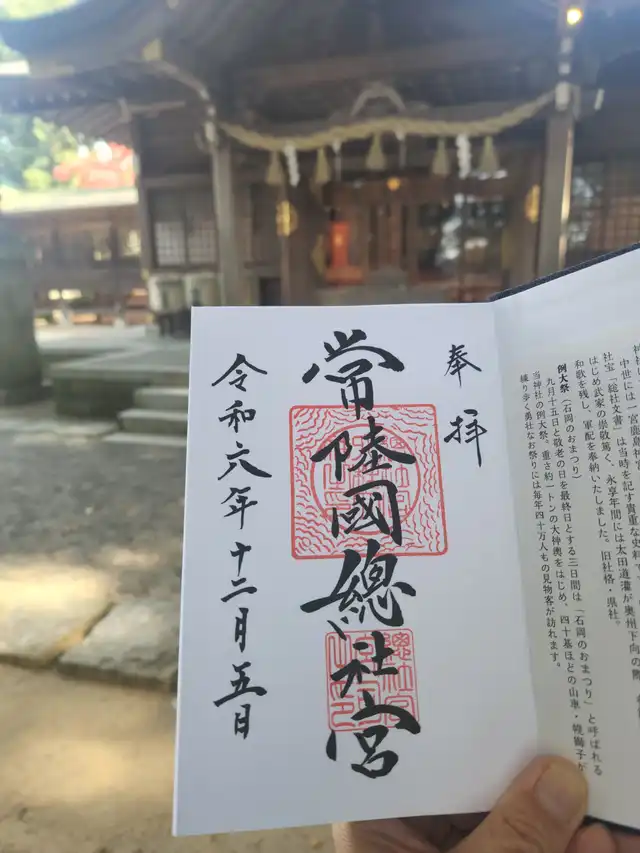 奉拝
常陸國總社宮
令和六年十二月五日
中世には
社宝「総社文書」は当時を記す貴重な史料
はじめ武家の崇敬篤く、永享年間には太田道灌が奥州下向の際
和歌を残し、軍配を奉納いたしました。旧社格・県社。
例大祭(石岡のおまつり)
九月十五日と敬老の日を最終日とする三日間は「石岡のおまつり」と呼ばれる
当神社の例大祭。重さ約一トンの大神輿をはじめ、四十基ほどの山車・幌獅子が
練り歩く勇壮なお祭りには毎年四十万人もの見物客が訪れます。